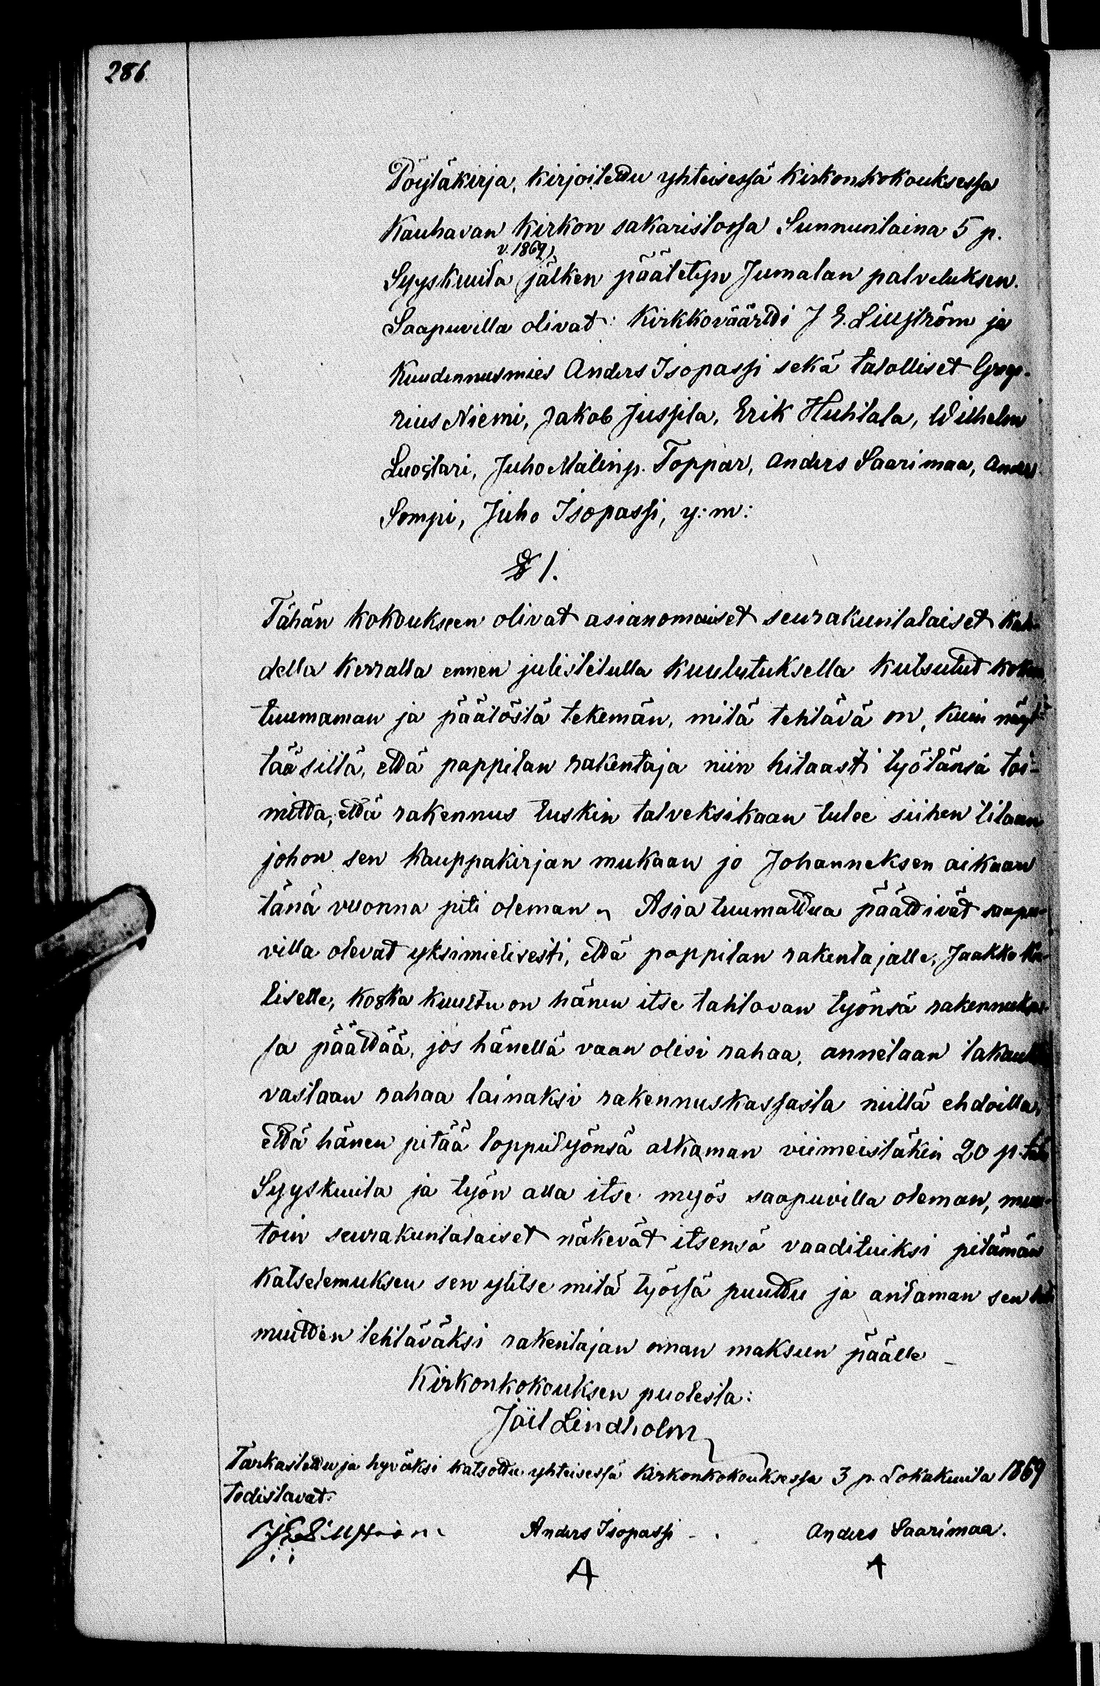 286.
Pöytäkirja, kirjoitettu yhteisessä kirkonkokouksessa
Kauhavan kirkon sakaristossa Sunnuntaina 5 p.
v. 1869,
Syyskuuta jälken päätetyn Jumalan palveluksen.
Saapuvilla olivat: Kirkkovääräti J E Lillström ja
Kuudennusmies Anders Isopassi sekä talolliset Grego-
rius Niemi, Jakob Jussila, Erik Huhtala, Wilhelm
Luostari, Juho Malinp. Toppar, Anders Saarimaa, Anders
Sompi, Juho Isopassi, y: m:
§ 1.
Tähän kokoukseen olivat asianomaiset seurakuntalaiset kah-
della kerralla ennen julistetulla kuulutuksella kutsutut kokoon
tuumaman ja päätöstä tekemän, mitä tehtävä on, kuin näyt-
tää siltä, että pappilan rakentaja niin hitaasti työtänsä toi-
mitta, että rakennus tuskin talveksikaan tulee siihen tilaan
johon sen kauppakirjan mukaan jo Johanneksen aikaan
tänä vuonna piti oleman. Asia tuumattua päättivät saapu-
villa olevat yksimielisesti, että pappilan rakentajalle, Jaakko
liselle, koska kuultu on hänen itse tahtovan työnsä rakennukses-
sa päättää, jos hänellä vaan olisi rahaa, annetaan takausta
vastaan rahaa lainaksi rakennuskassasta niillä ehdoilla,
että hänen pitää lopputyönsä alkaman viimeistäkin 20 p. tätä
Syyskuuta ja työn alla itse myös saapuvilla oleman, muu-
toin seurakuntalaiset näkevät itsensä vaadituiksi pitämän
katselemuksen sen ylitse mitä työssä puuttu ja antaman sen
muitten tehtäväksi rakentajan oman maksun päälle
Kirkonkokouksen puolesta:
Joel Lindholm
Tarkastettu ja hyväksi katsottu yhteisessä kirkonkokouksessa 3 p. Lokakuuta 1869
todistavat:
J E Lillström Anders Isopassi Anders Saarimaa.
A A